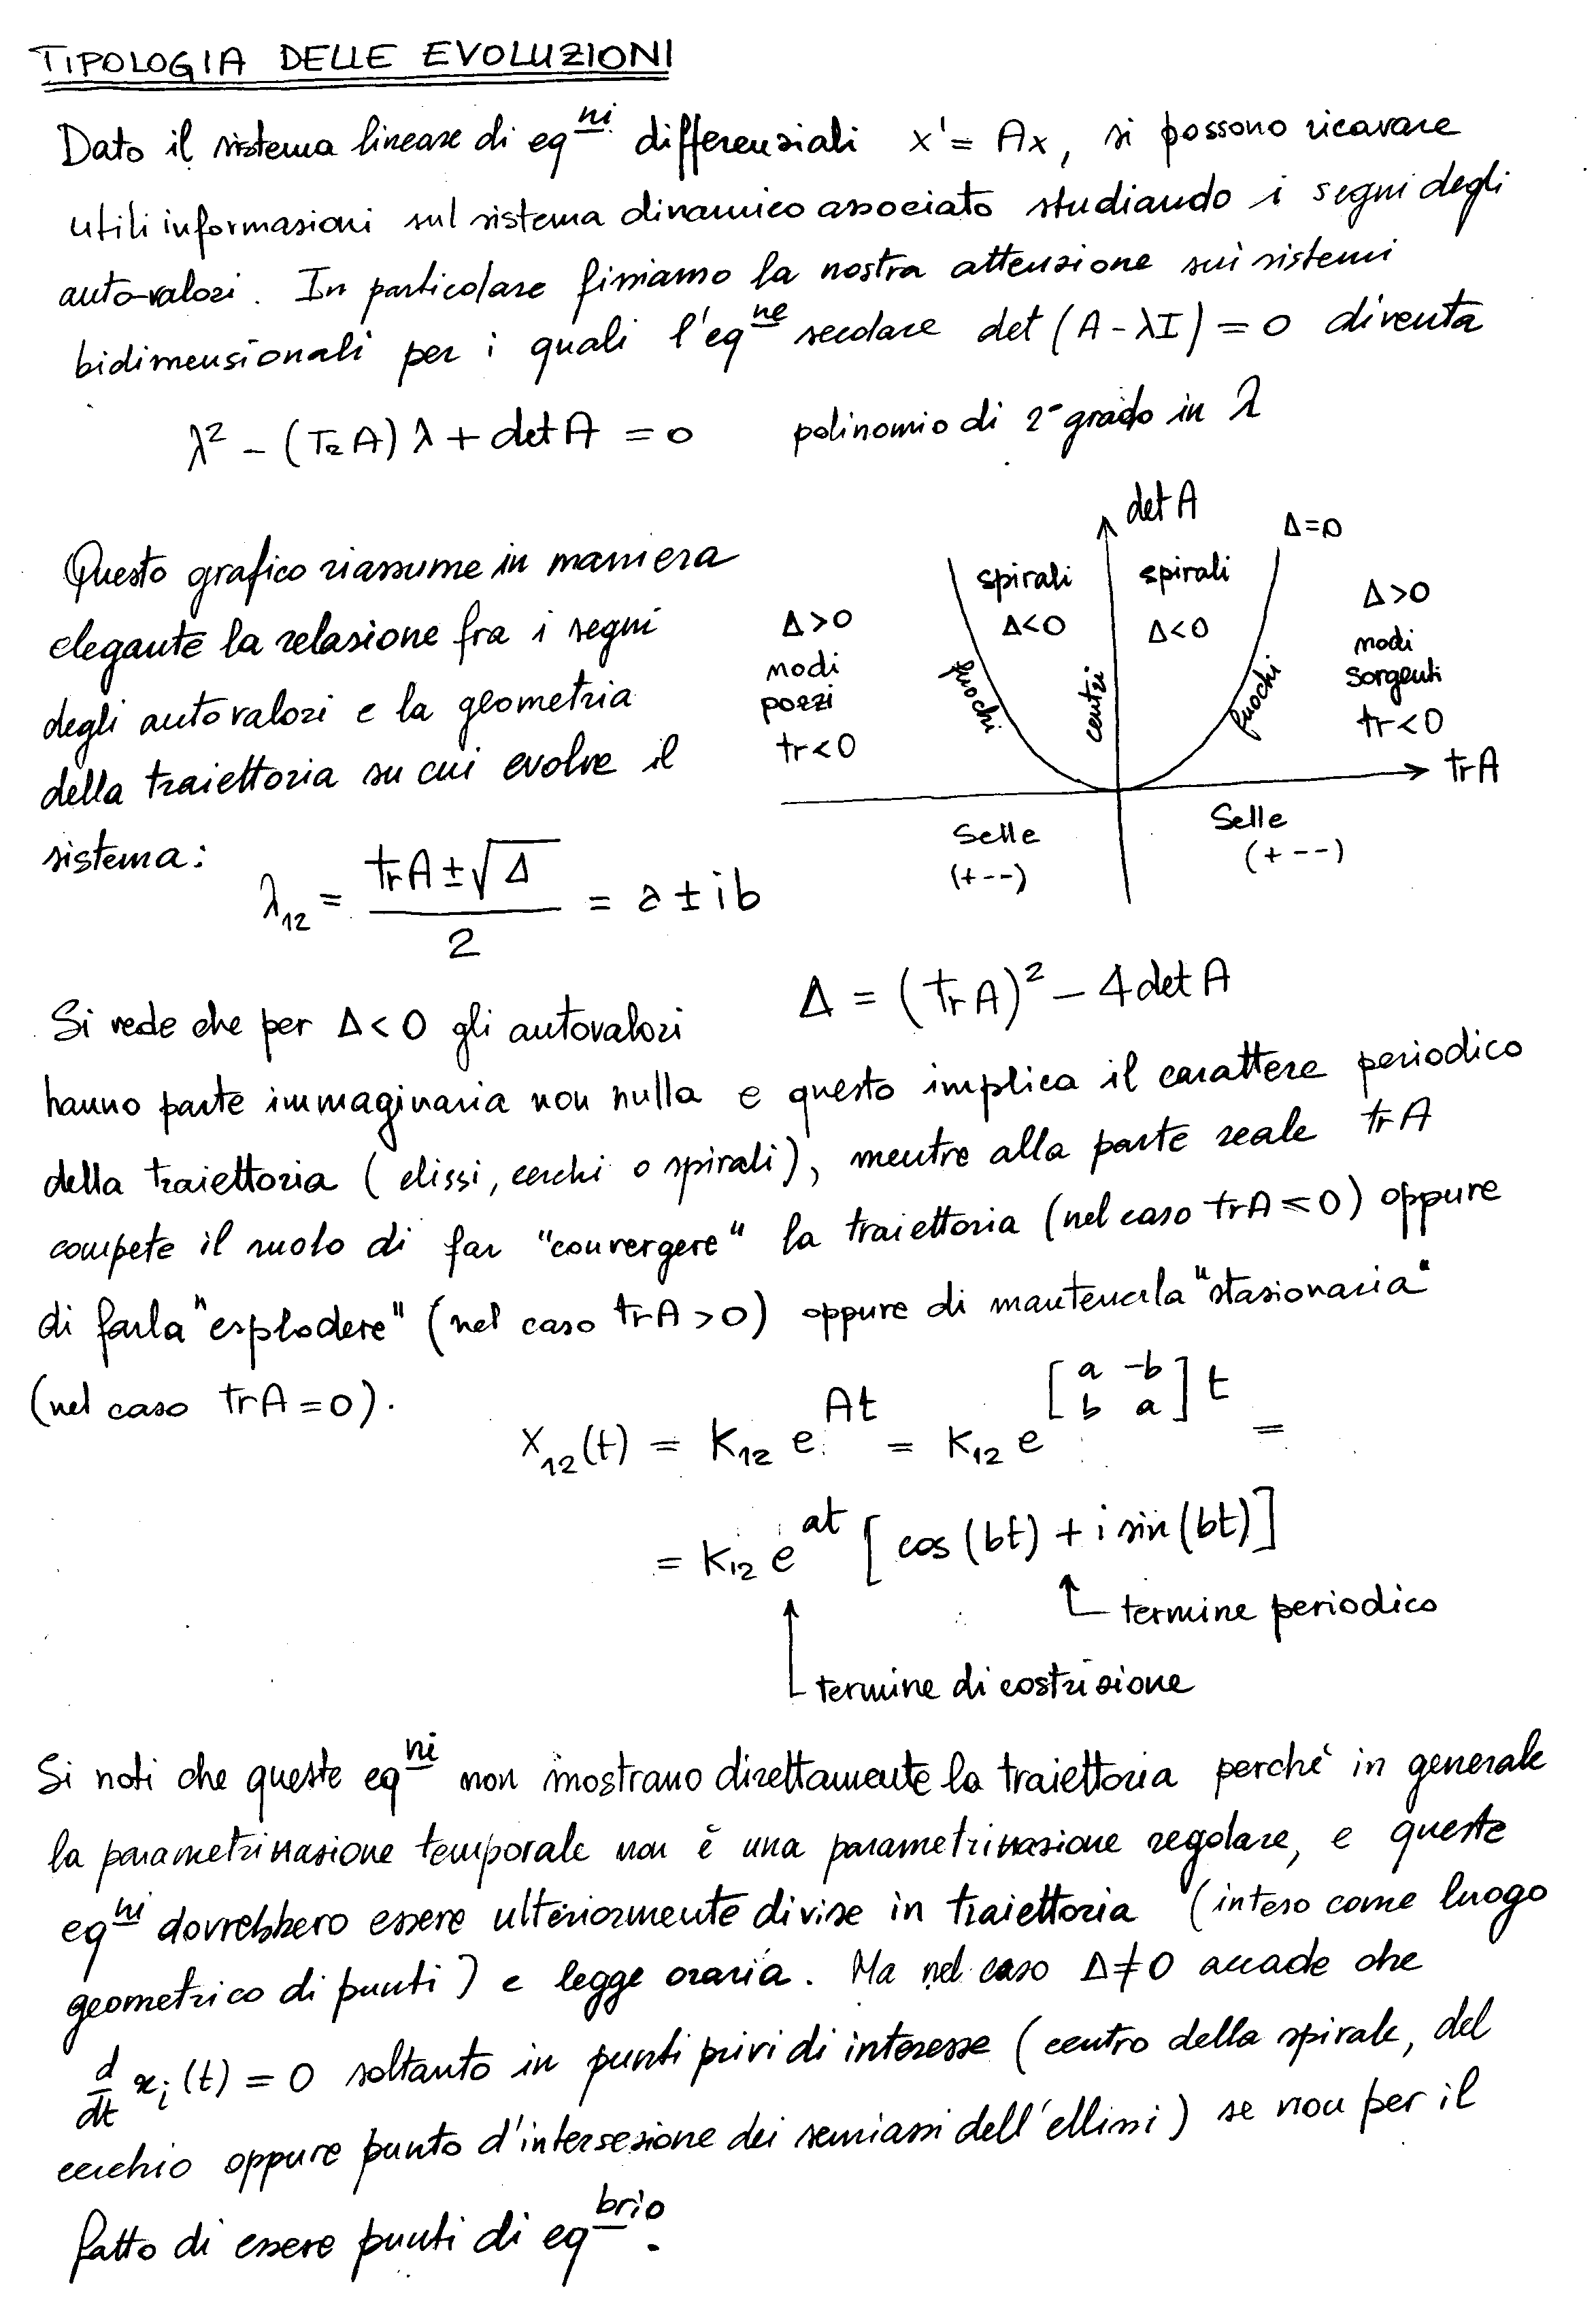 TIPOLOGIA DELLE EVOLUZIONI
Dato il sistema lineare di eq^ni differenziali x' = Ax, si possono ricavare
utili informazioni sul sistema dinamico associato studiando i segni degli
auto-valori. In particolare fissiamo la nostra attenzione sui sistemi
bidimensionali per i quali l'eq^ne secolare det (A - λI) = 0 diventa
λ² - (Tr A) λ + det A = 0 polinomio di 2° grado in λ
det A
Δ=0
spirali
Δ<0
spirali
Δ<0
Δ>0
nodi
pozzi
tr<0
Δ>0
nodi
sorgenti
tr<0
fuochi
centri
fuochi
trA
Selle
(+--)
Selle
(+--)
Questo grafico riassume in maniera
elegante la relazione fra i segni
degli autovalori e la geometria
della traiettoria su cui evolve il
sistema:
λ₁₂ = (trA ± √Δ)/2 = a ± ib
Δ = (trA)² - 4 det A
Si vede che per Δ<0 gli autovalori
hanno parte immaginaria non nulla e questo implica il carattere periodico
della traiettoria (elissi, cerchi o spirali), mentre alla parte reale trA
compete il ruolo di far "convergere" la traiettoria (nel caso trA<0) oppure
di farla "esplodere" (nel caso trA>0) oppure di mantenerla "stazionaria"
(nel caso trA=0).
x₁₂(t) = K₁₂ e^{At} = K₁₂ e^{[a -b; b a] t} =
= K₁₂ e^{at} [cos (bt) + i sin (bt)]
termine periodico
termine di costrizione
Si noti che queste eq^ni non mostrano direttamente la traiettoria perché in generale
la parametrizzazione temporale non è una parametrizzazione regolare, e queste
eq^ni dovrebbero essere ulteriormente divise in traiettoria (inteso come luogo
geometrico di punti) e legge oraria. Ma nel caso Δ≠0 accade che
d/dt xᵢ(t) = 0 soltanto in punti privi di interesse (centro della spirale, del
cerchio oppure punto d'intersezione dei semiassi dell'ellissi) se non per il
fatto di essere punti di eq^brio.